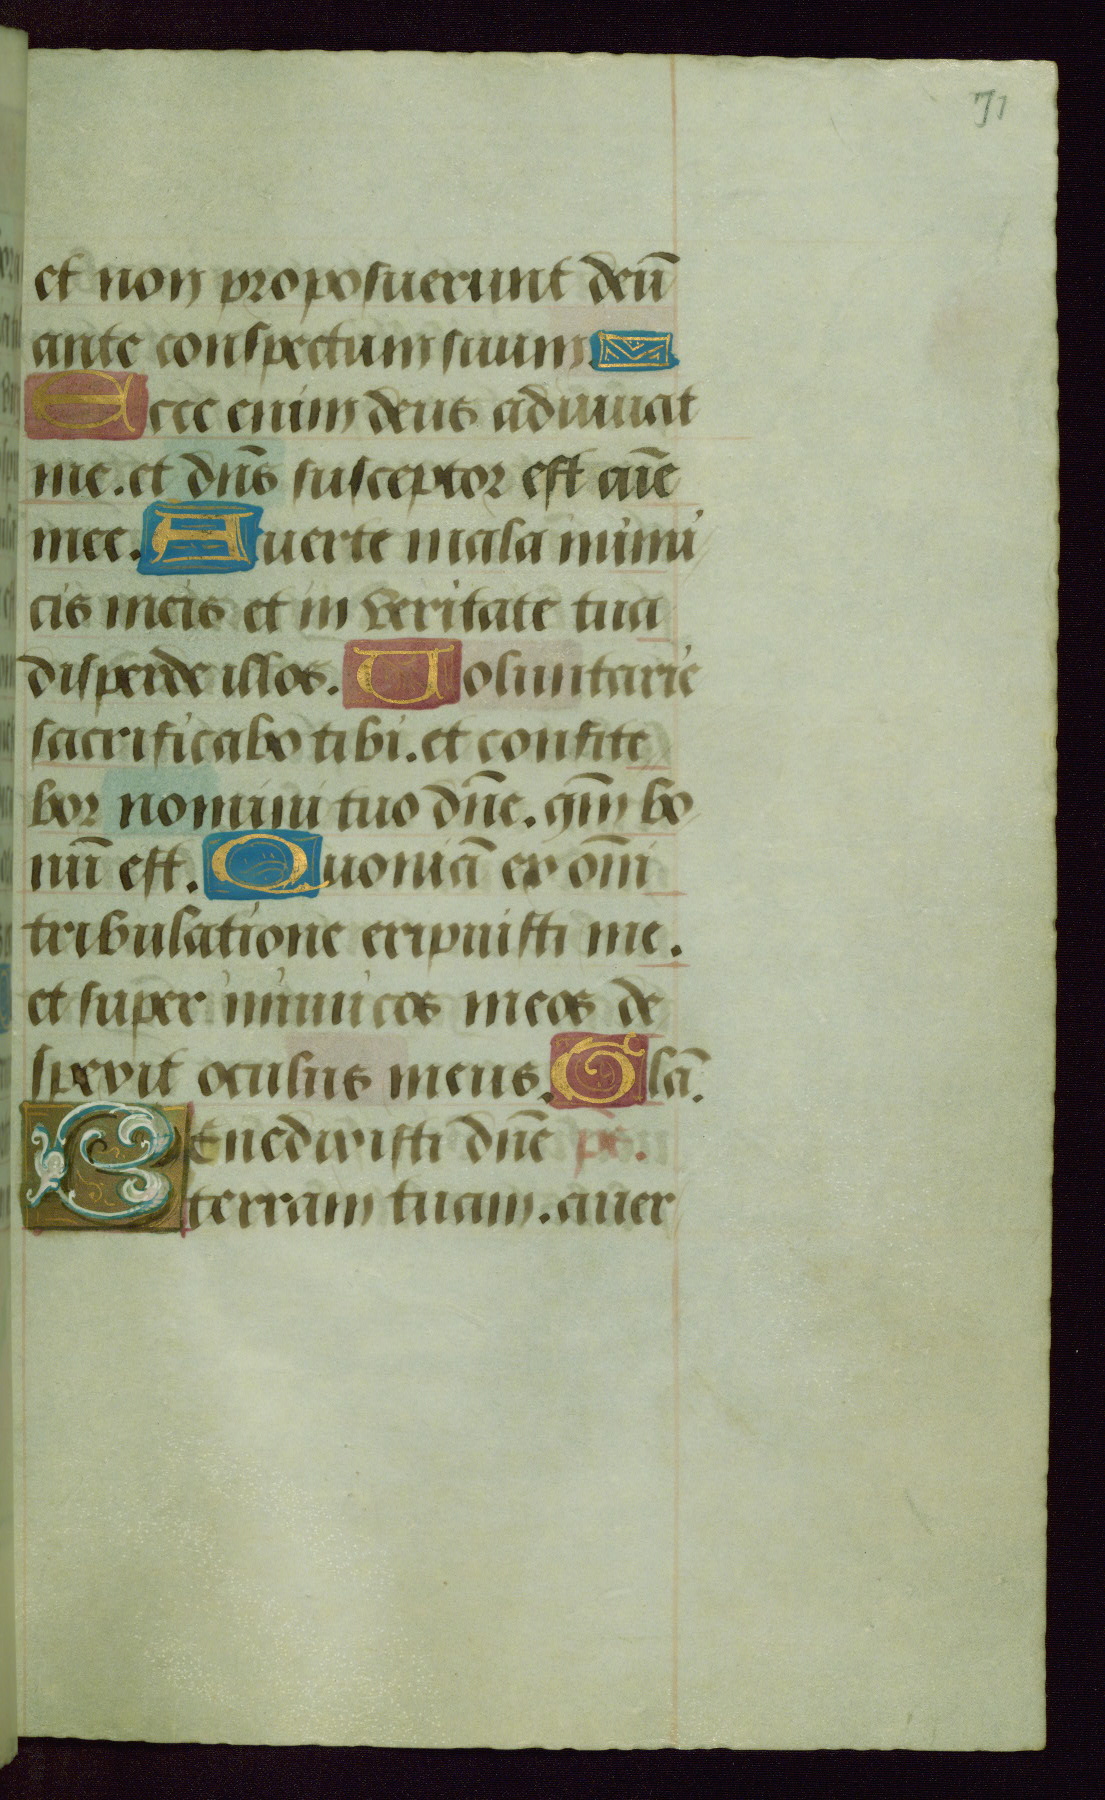 71
et non proposuerunt deū
ante conspectum suum
Ecce enim deus adiuuat
me. et dn̄s susceptor est aīe
mee. Auerte mala inimi
cis meis et in veritate tua
disperde illos. Uoluntarie
sacrificabo tibi. et confite
bor nomini tuo dn̄e. qm̄ bo
nū est. Quoniā ex om̄i
tribulatione eripuisti me.
et super inimicos meos de
spexit oculus meus. Glā.
Benedixisti dn̄e ps.
terram tuam. auer